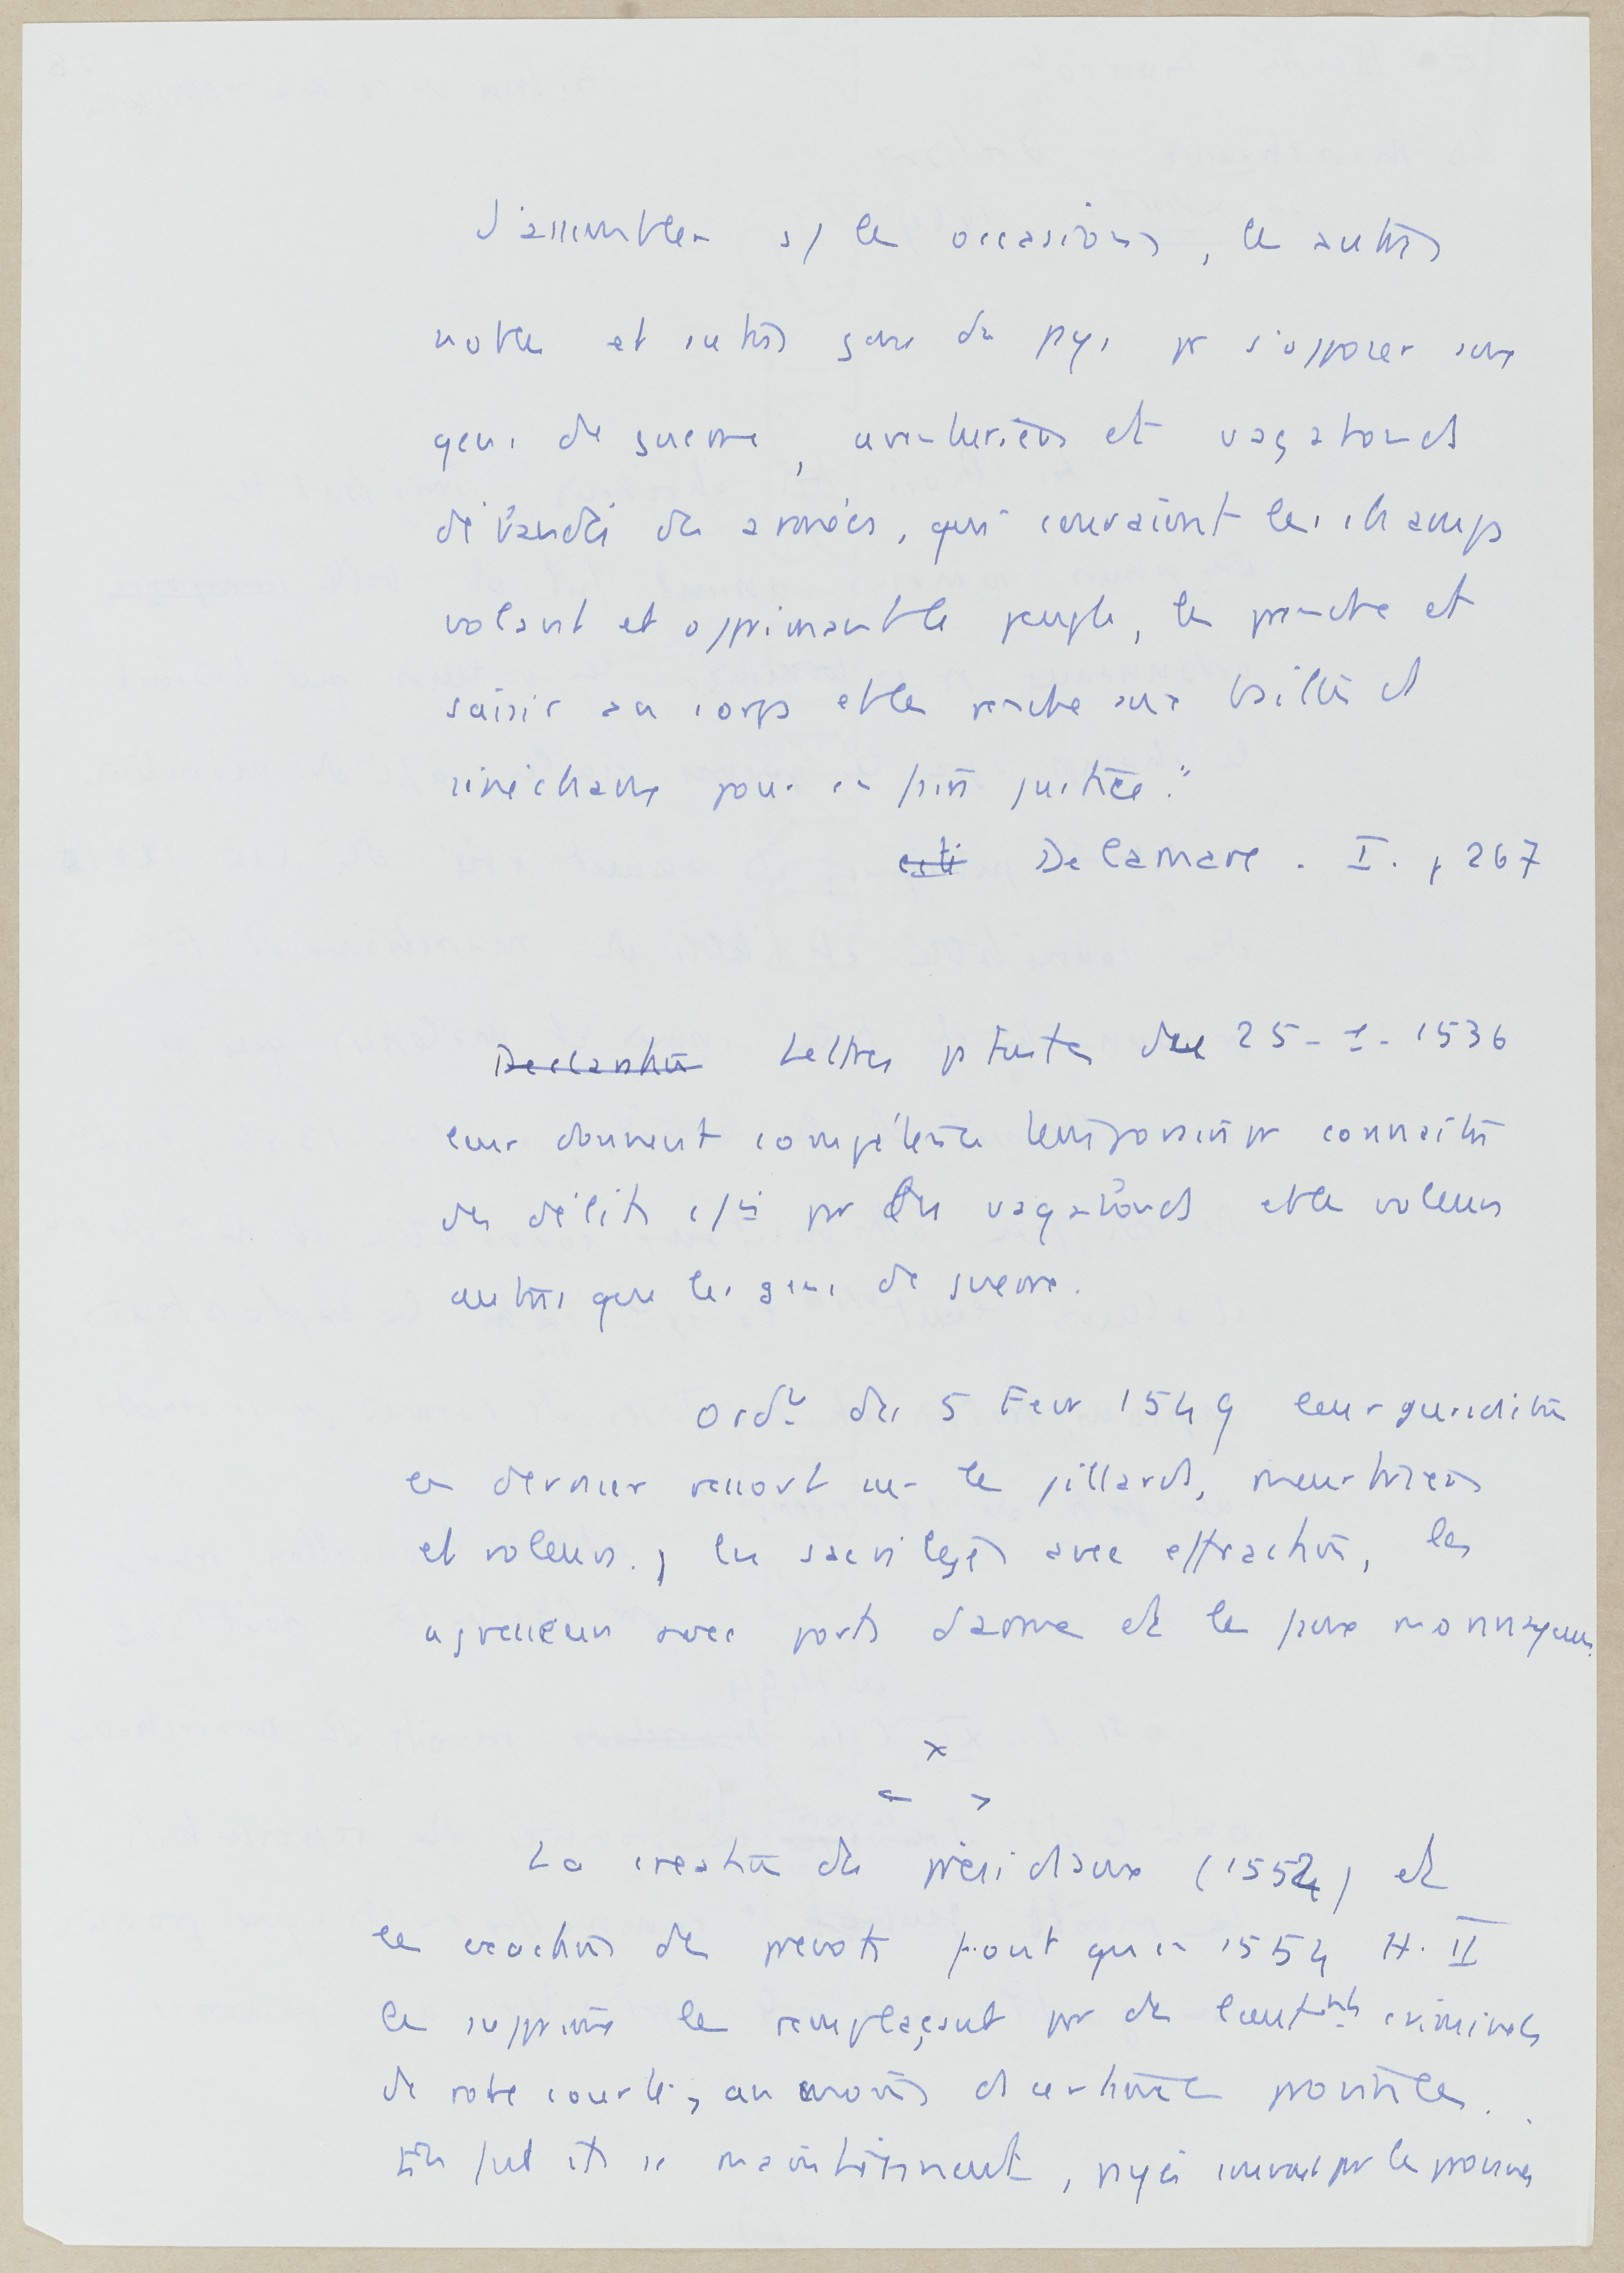 s'assembler s/ les occasions, les autres
nobles et autres gens du pays pr s'opposer aux
gens de guerre, aventuriers et vagabonds
débandés des armées, qui couraient les champs
volant et opprimant le peuple, les prendre et
saisir au corps et les rendre aux baillis et
sénéchaux pour en faire justice."
Delamare. I. p 267
Declaration Lettres ptentes du 25-1-1536
leur donnent compétence temporaire pr connaître
des délits c/is pr des vagabonds et les voleurs
autres que les gens de guerre.
Ordce du 5 Fevr 1549 leur juridiction
en dernier ressort sur les pillards, meurtriers
et voleurs, les sacrilèges avec effraction, les
agresseurs avec ports d'arme et les faux monnayeurs.
x
La création des présidiaux (1552) et
les exactions des prevots font qu'en 1554 H. II
les supprime les remplaçant pr des lieutnts criminels
de robe courte, au moins d certaines provinces.
En fait ils se maintiennent, payés pr les provinces